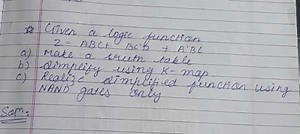 ☆ Given a logic function
Z = ABC + BC'D + A'BC
a) Make a truth table
b) Simplify using K-map
c) Realize simplified function using
NAND gates only
Soln.